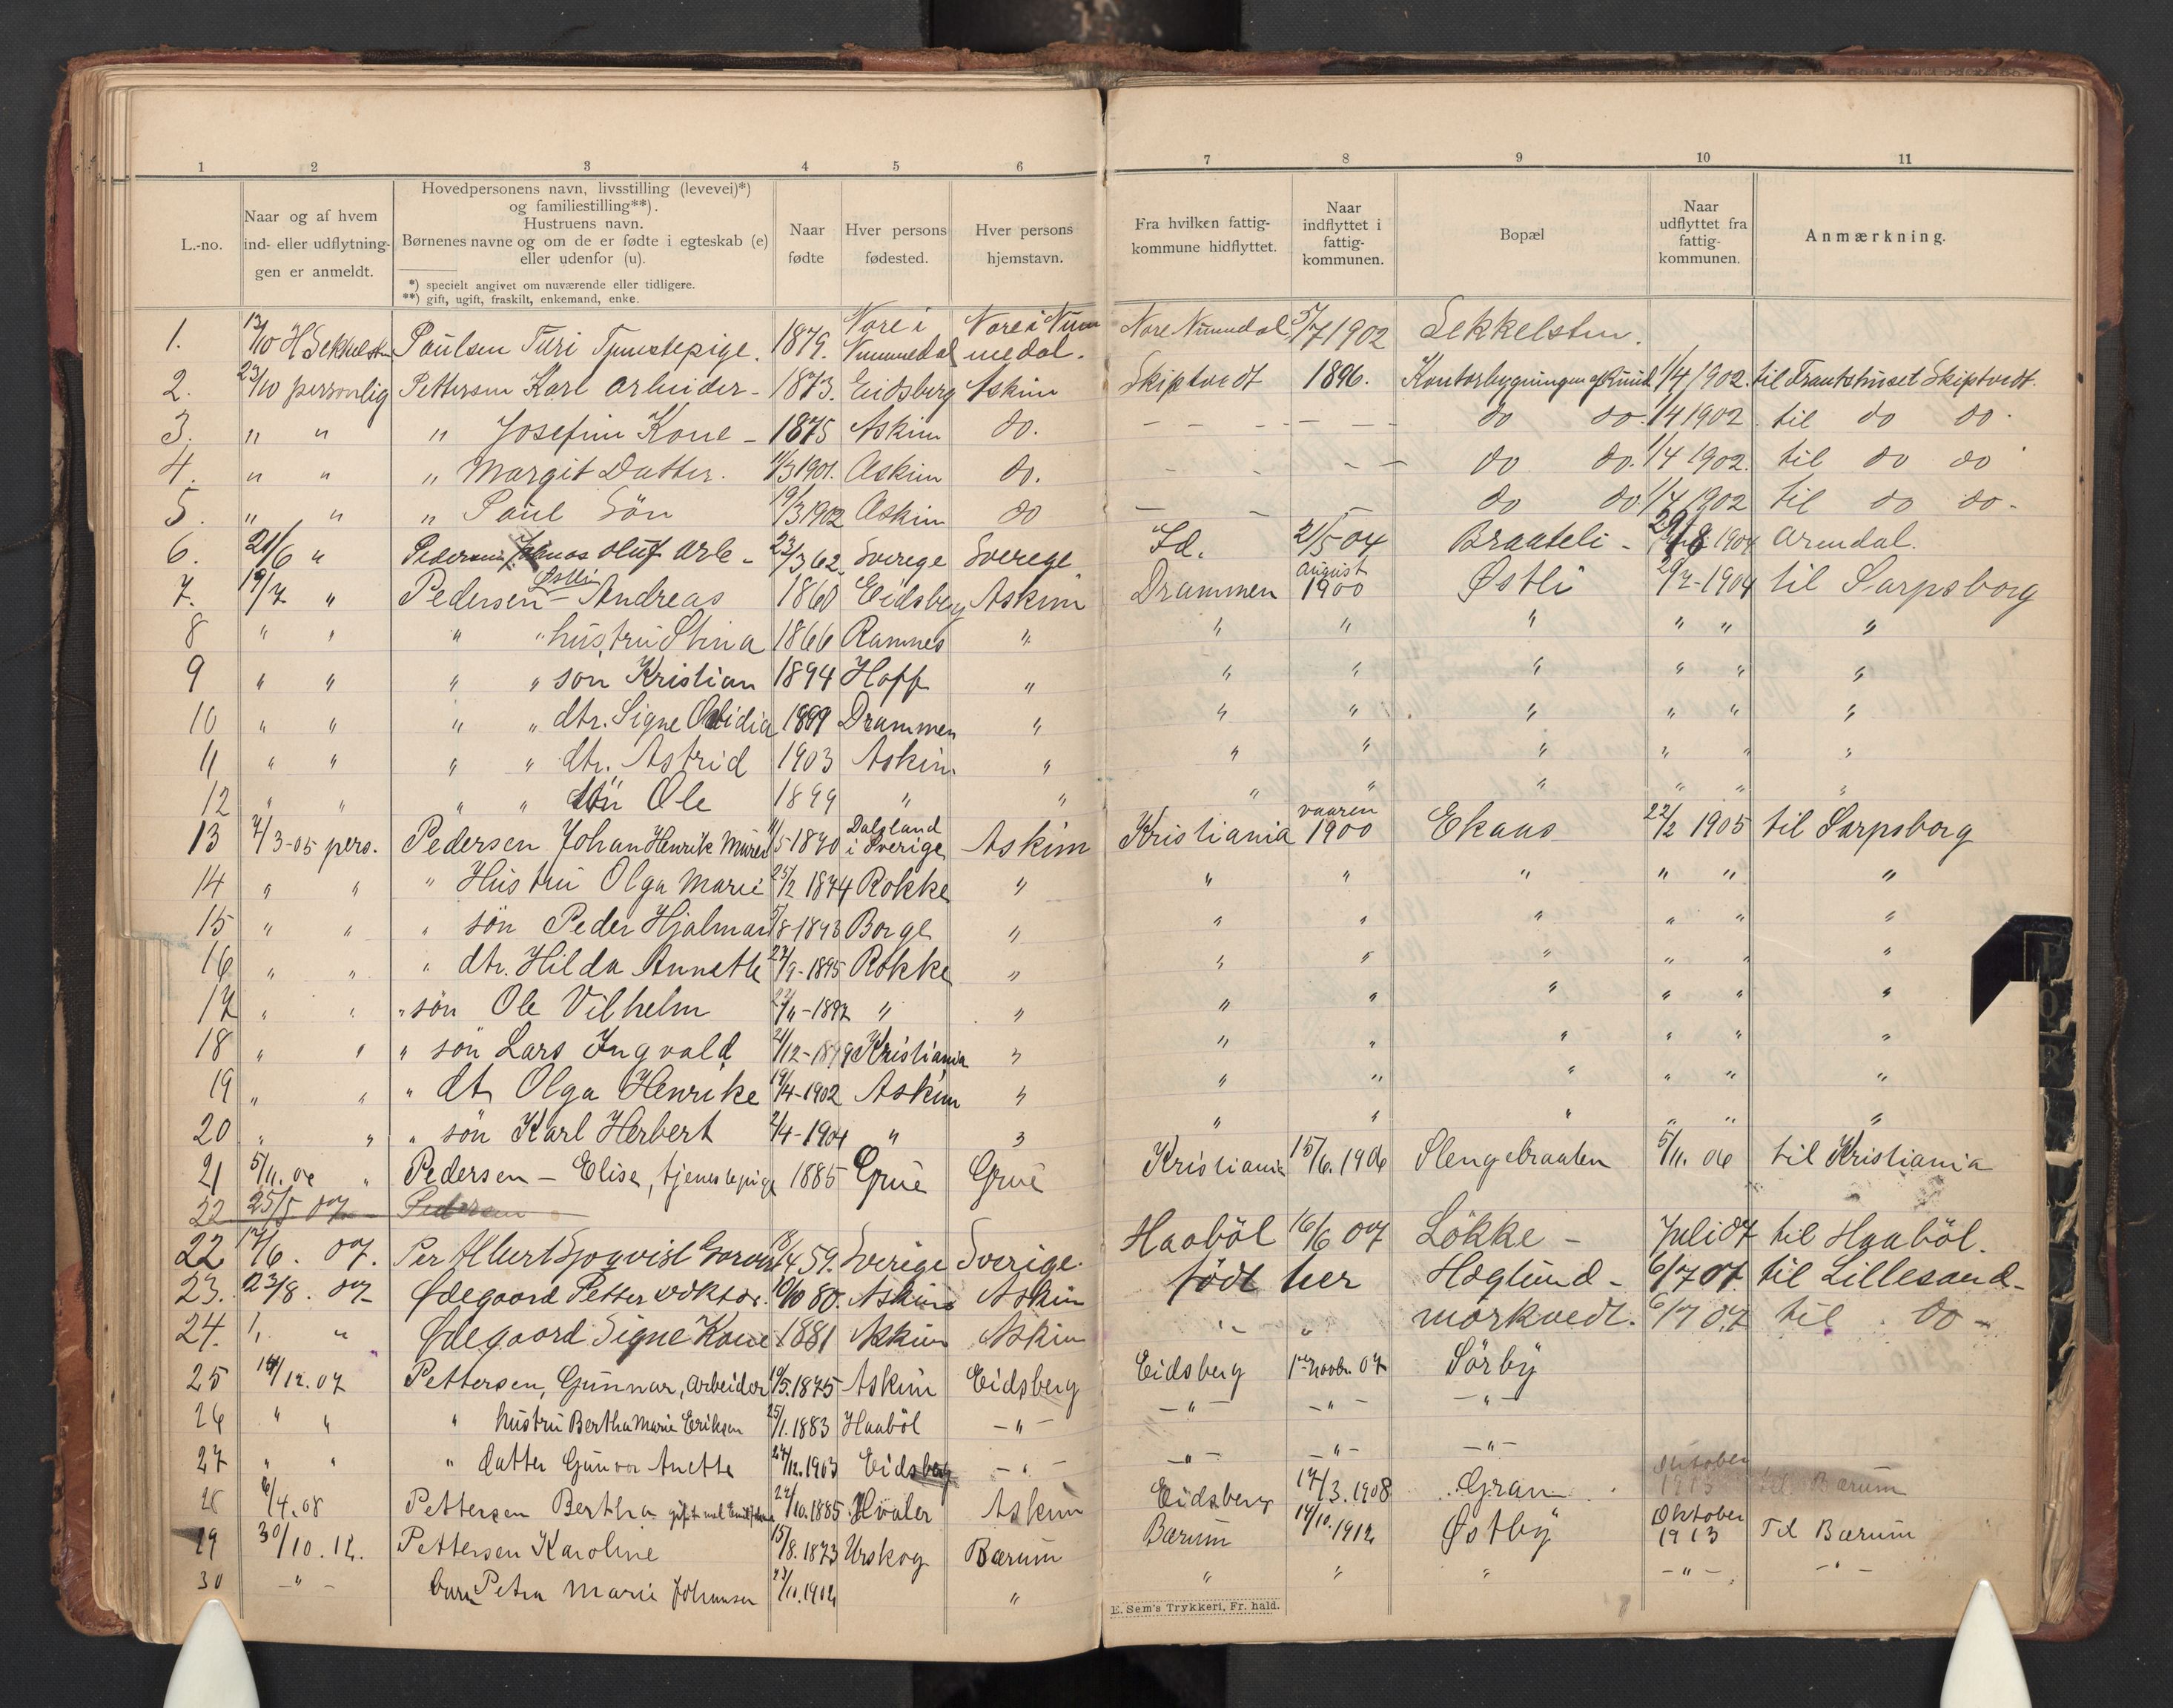 1 2 3 4 5 6 7 8 9 10 11
L.-no.
Naar og af hvem
ind- eller udflytning-
gen er anmeldt.
Hovedpersonens navn, livsstilling (levevei)*)
og familiestilling**).
Hustruens navn.
Børnenes navne og om de er fødte i egteskab (e)
eller udenfor (u).
*) specielt angivet om nuværende eller tidligere.
**) gift, ugift, fraskilt, enkemand, enke.
Naar
fødte
Hver persons
fødested.
Hver persons
hjemstavn.
Fra hvilken fattig-
kommune hidflyttet.
Naar
indflyttet i
fattig-
kommunen.
Bopæl
Naar
udflyttet fra
fattig-
kommunen.
Anmærkning.
1. 13/10 H Sekkelsten Paulsen Turi Tjenstepige. 1879. Nore i Nummedal Nore i Nummedal. Nore Numedal 5/7 1902 Sekkelsten.
2. 23/10 personlig Pettersen Karl Arbeider - 1873. Eidsberg Askim Skiptvedt 1896. Kontorbygningen 1/4 1902. til Skiptvedt.
3. " " " Josefine Kone - 1875 Askim do. - - - - - - do do. 1/4 1902. til do do.
4. " " " Margit Datter. 11/3 1901. Askim do. - - - - do do. 1/4 1902. til do do
5. " " " Paul Sön 19/3 1902 Askim do - - - do do 1/4 1902 til do do.
6. 21/6 " Pedersen Oluf Arb. - 23/3 62. Sverege Sverege Id. 21/5 04 Braateli - 29/8 1904 Arendal.
7. 19/7 " Pedersen - Østli Andreas 1860 Eidsberg Askim Drammen august 1900 Østli 29/7-1904 til Sarpsborg
8 " " " " hustru Stina 1866 Ramnes " " " " " " "
9 " " " " søn Kristian 1894 Hoff " " " " " " "
10 " " " " dtr. Signe Ovidia 1889 Drammen " " " " " " "
11 " " " " dtr. Astrid 1903 Askim " " " " " " "
12 " " " " sön Ole 1899 " " " " " " " "
13 7/3-05 pers. Pedersen Johan Henrik Murer 11/5-1870 Dalsland i Sverige Askim Kristiania vaaren 1900 Ekaas 22/2 1905 til Sarpsborg
14 " " " Hustru Olga Marie 25/2 1874 Rokke " " " " " " "
15 " " " sön Peder Hjalmar 5/8-1893 Borge " " " " " " "
16 " " " dtr. Hilda Annette 27/9-1895 Rokke " " " " " " "
17 " " " sön Ole Vilhelm 22/11-1897 " " " " " " " "
18 " " " sön Lars Ingvald 21/12-1899 Kristiania " " " " " " "
19 " " " dt. Olga Henrike 19/4-1902 Askim " " " " " " "
20 " " " sön Karl Herbert 2/4-1904 " " " " " " " "
21 5/11. 06 " Pedersen - Elise, tjenestepige 1885 Grue Grue Kristiania 15/6. 1906 Slengebraaten 5/11. 06 til Kristiania
22 25/5 07 Pedersen
22 17/6. 07. Per Albert Sjoqvist 18/4 59. Sverige Sverige. Haaböl 16/6 07 Lökke - Juli 07 til Haaböl.
23. 23/8. 07 Ødegaard Petter doktor. 10/10 80. Askim Askim født her Høglund - 6/7 07 til Lillesand -
24. " " Ødegaard Signe Kone 1881 Askim Askim " " morkvedt. 6/7 07 til do -
25 14/12. 07 Pettersen, Gunnar, arbeider 10/5. 1875 Askim Eidsberg Eidsberg 1ste novbr. 07 Sörby
26 " " " hustru Bertha Marie Eriksen 25/1. 1883 Haaböl - " - - " - - " - - " -
27 " " " datter Gunvor Anette 27/12. 1903 Eidsberg - " - - " - - " - - " -
28 6/4. 08 Pettersen Bertha gift med 22/10. 1885 Hvaler Askim Eidsberg 17/3. 1908 Gran oktober 1913 til Bærum
29 30/10. 12. Pettersen Karoline 15/8. 1873 Urskog Bærum Bærum 14/10. 1912 Østby Oktober 1913 Til Bærum
30 - " - barn Petra Marie Johansen 23/11. 1902 " " " " - " - - " -
E. Sem's Trykkeri, Fr. hald.